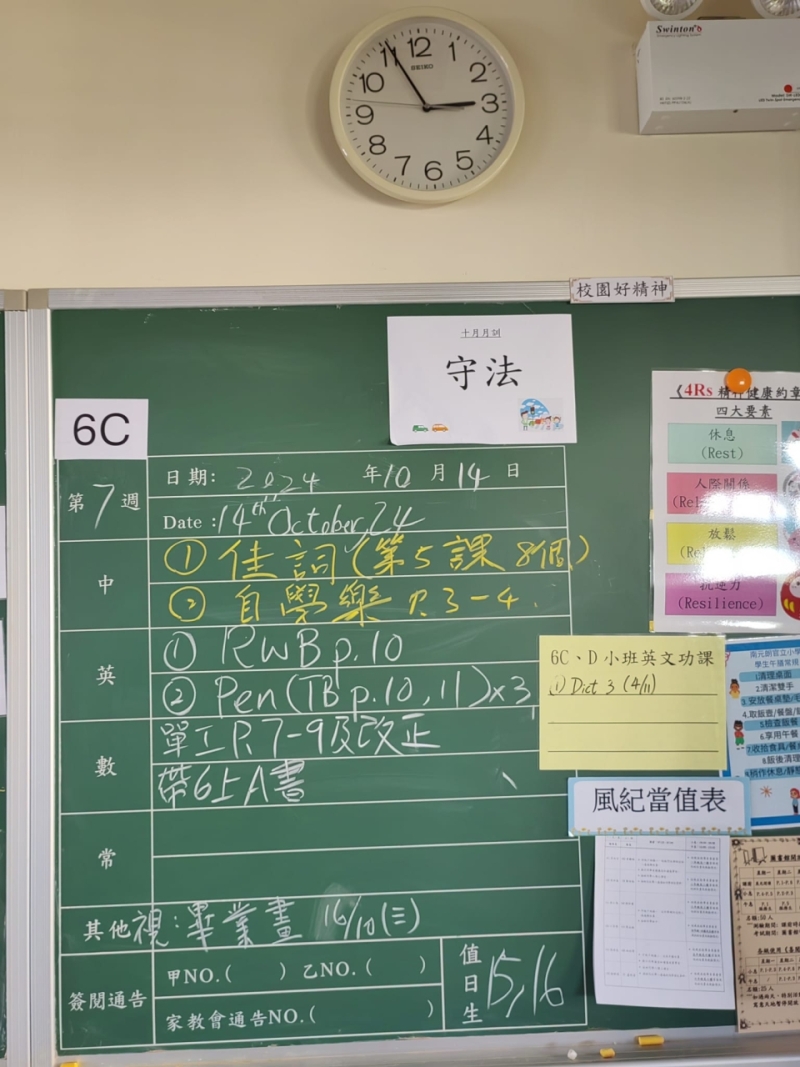 12 1 2 3 4 5 6 7 8 9 10 11
SEIKO
Swinton
校園好精神
十月月訓
守法
6C
第7週
日期: 2024 年10月14日
Date : 14th October, 24
中
① 佳詞(第5課 8個)
② 自學樂 P.3-4.
英
① RWB p.10
② Pen (TB p.10, 11)×3
數
單工 P.7-9及改正
帶6上A書
常
其他 視:畢業畫 16/10(三)
簽閱通告
甲NO.( ) 乙NO.( )
家教會通告NO.( )
值日生 15, 16
《4Rs 精神健康約章
四大要素
休息
(Rest)
人際關係
放鬆
抗逆力
(Resilience)
6C、D 小班英文功課
① Dict 3 (4/11)
學生午膳常規
1清理桌面
2.清潔雙手
4.取飯壺/餐盤/
5檢查飯餐
6.享用午餐
7.收拾食具/餐
8飯後清理
風紀當值表